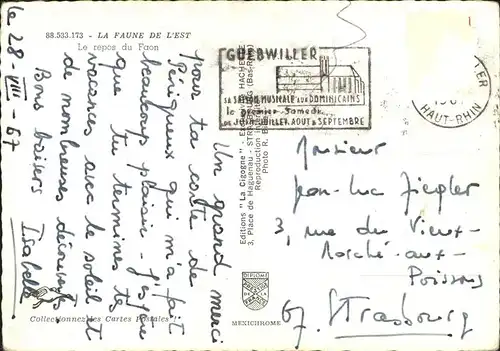 88.533.173 - LA FAUNE DE L'EST
Le repos du Faon
le 28-VIII-67
Un grand merci
pour ta carte de
Périgueux qui m'a fait
beaucoup plaisir. J'espère
que tu termines tes
vacances avec le soleil et
de nombreuses découvertes
Bons baisers
Isabelle
Collectionnez les Cartes Postales
Editions "La Cigogne" - Ex. HACHETTE
3, Place de Haguenau - STRASBOURG (Bas-Rhin)
Reproduction
Photo R.
DIPLOME
MEXICHROME
GUEBWILLER
SA SAISON MUSICALE AUX DOMINICAINS
le premier Samedi
DE JUIN JUILLET AOUT & SEPTEMBRE
HAUT-RHIN
Monsieur
Jean-Luc Ziegler
3, rue du Vieux-
Marché-aux-
Poissons
67. Strasbourg